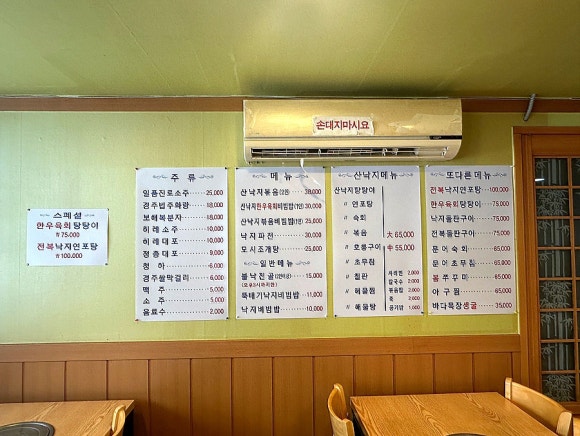 손대지마시요
스페셜
한우육회탕탕이
₩ 75,000
전복낙지연포탕
₩ 100,000
주 류
일품진로소주 25,000
경주법주화랑 18,000
보해복분자 18,000
히레소주 14,000
히레대포 10,000
정종대포 9,000
청하 6,000
경주쌀막걸리 6,000
맥주 5,000
소주 5,000
음료수 2,000
메 뉴
산낙지볶음(2인) 38,000
산낙지한우육회비빔밥(1인) 30,000
산낙지볶음비빔밥(1인) 25,000
낙지파전 30,000
모시조개탕 30,000
일반메뉴
불낙전골 15,000
뚝배기낙지비빔밥 11,000
낙지비빔밥 10,000
산낙지메뉴
산낙지탕탕이
〃 연포탕
〃 숙회
〃 볶음
〃 호롱구이
〃 초무침
〃 철판
〃 해물찜
〃 해물탕
大 65,000
中 55,000
사리면 2,000
칼국수 2,000
볶음밥 2,000
죽 2,000
공기밥 1,000
또다른메뉴
전복낙지연포탕 100,000
한우육회탕탕이 75,000
낙지돌판구이 75,000
전복돌판구이 75,000
문어숙회 65,000
문어초무침 65,000
봄쭈꾸미 65,000
아구찜 65,000
바다목장생굴 35,000